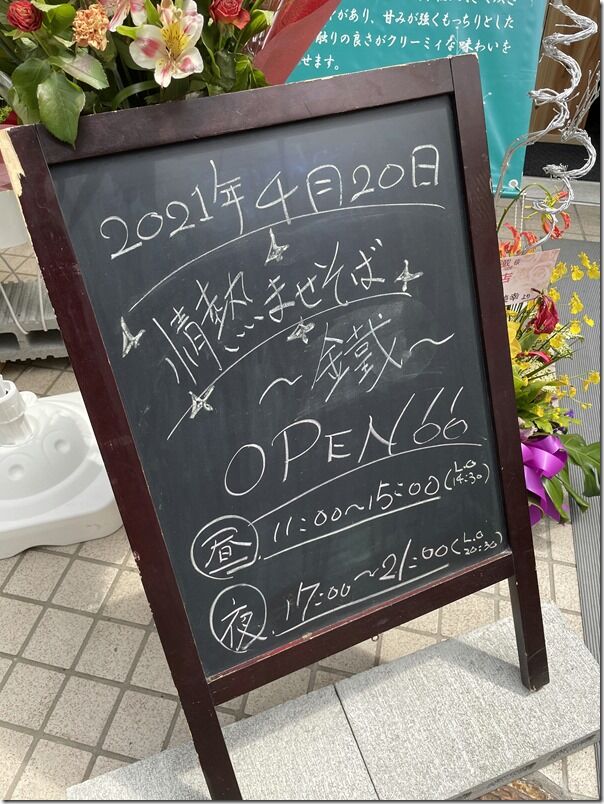 があり、甘みが強くもっちりとした
触りの良さがクリーミィな味わいを
せます。
2021年4月20日
情熱ませそば
～金鐵～
OPEN!!
昼 11:00～15:00(L.O 14:30)
夜 17:00～21:00(L.O 20:30)